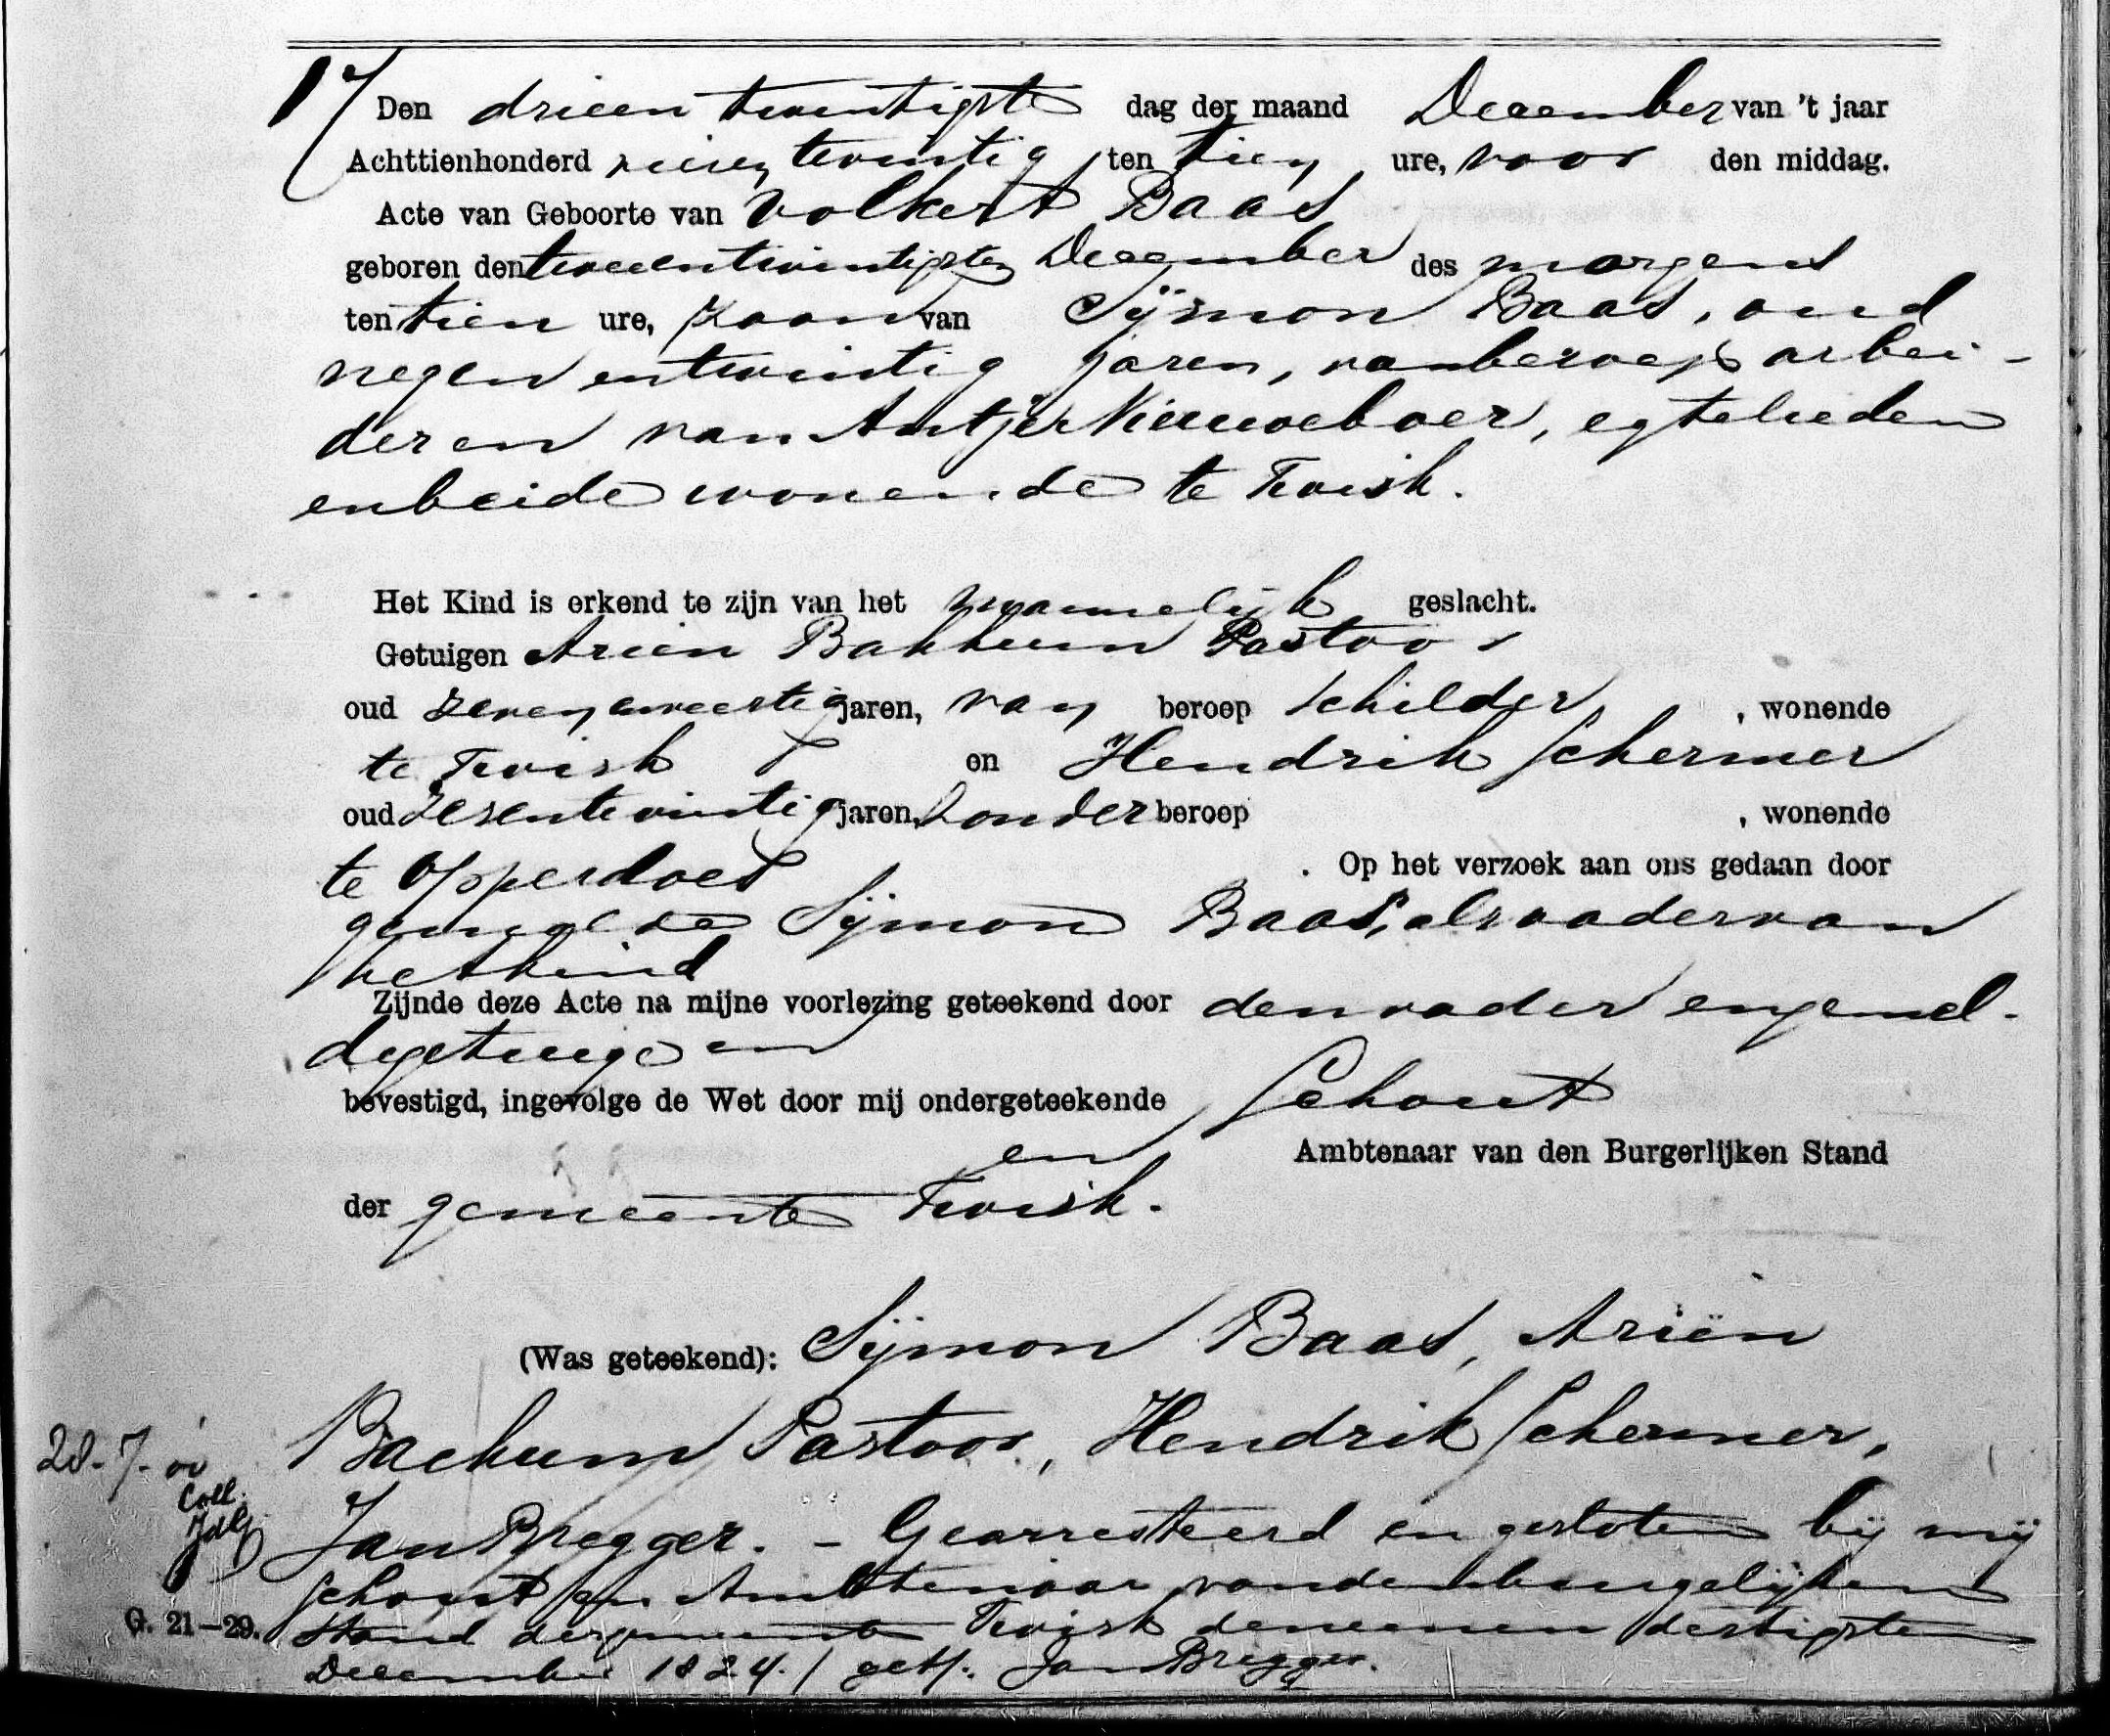 17 Den drieen twentigste dag der maand December van 't jaar
Achttienhonderd vieren twintig ten tien ure, voor den middag.
Acte van Geboorte van Volkert Baas
geboren den tweeentwintigsten December des morgens
ten tien ure, zoon van Sijmon Baas, oud
negen entwintig jaren, van beroep arbei-
der en van Antje Nieuweboer, egtelieden
en beide wonende te Twisk.
Het Kind is erkend te zijn van het mannelijk geslacht.
Getuigen Arien Bakkum Pastoor
oud zevenenveertig jaren, van beroep schilder, wonende
te Twisk en Hendrik Schermer
oud zesentwintig jaren, zonder beroep , wonende
te Opperdoes . Op het verzoek aan ons gedaan door
gemelde Sijmon Baas, als vader van
het kind
Zijnde deze Acte na mijne voorlezing geteekend door den vader en gemel-
de getuigen
bevestigd, ingevolge de Wet door mij ondergeteekende Schout
en Ambtenaar van den Burgerlijken Stand
der gemeente Twisk.
(Was geteekend): Sijmon Baas, Ariën
Bachum Pastoor, Hendrik Schermer,
Jan Bregger. - Gearresteerd en gesloten bij mij
schout en Ambtenaar van den burgelijken
stand der gemeente Twisk den eenen dertigsten
December 1824. / get/. Jan Bregger.
28-7-
Coll.
G. 21-29.